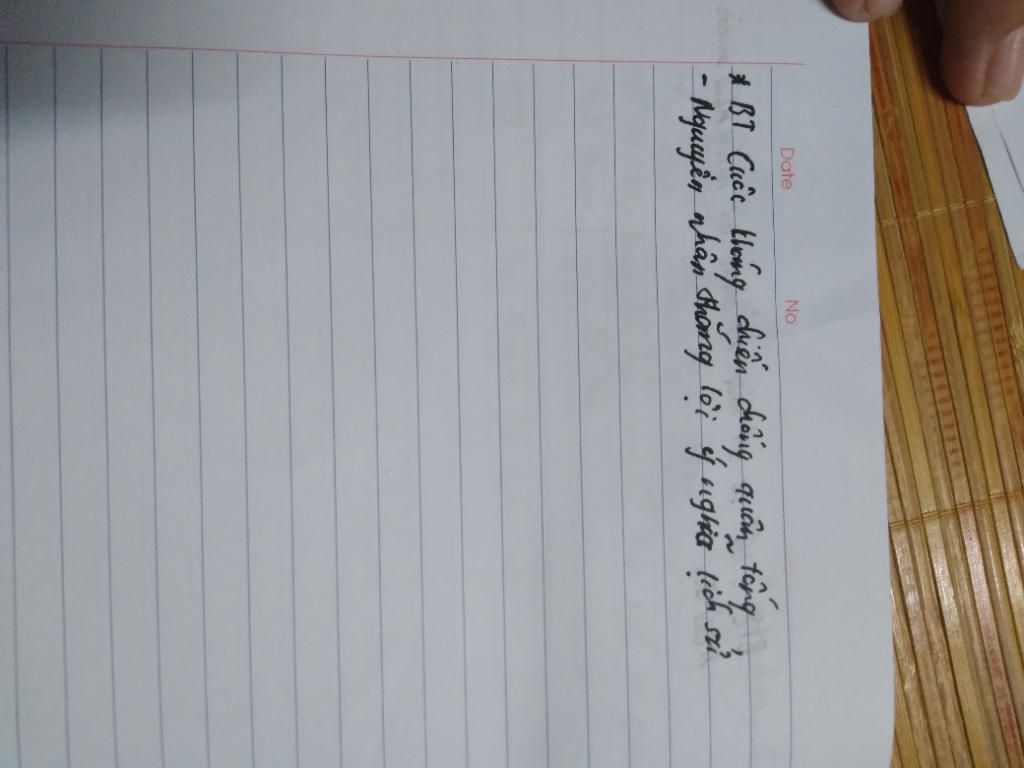 Date No
* BT Cuộc kháng chiến chống quân tống
- Nguyên nhân thắng lợi ý nghĩa lịch sử